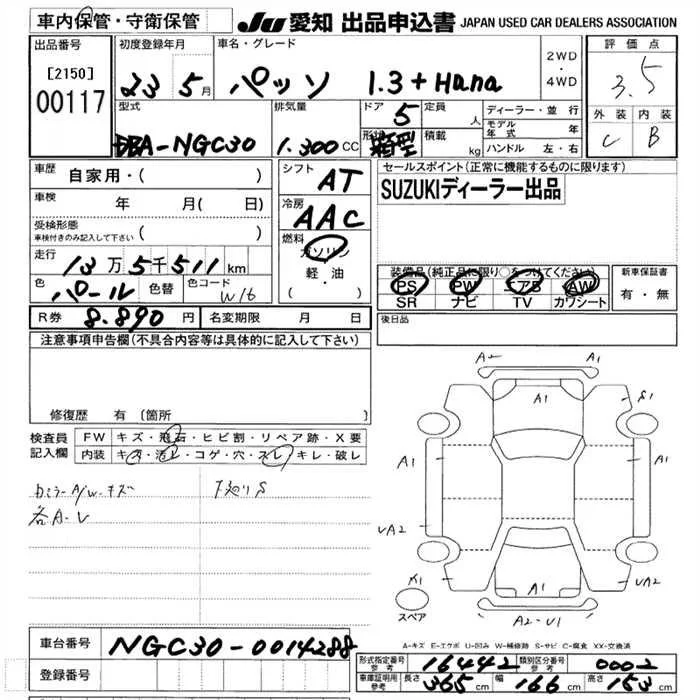 車内保管・守衛保管
JU 愛知 出品申込書 JAPAN USED CAR DEALERS ASSOCIATION
出品番号 初度登録年月 車名・グレード 2WD・4WD 評価点
[2150]
00117
23 5月 パッソ 1.3+Hana 3.5
型式 排気量 ドア 5 定員 人 ディーラー・並行 外装 内装
DBA-NGC30 1.300CC 形状 箱型 積載 kg モデル年式 年 C B
ハンドル 左・右
車歴 自家用・( )
シフト AT
セールスポイント(正常に機能するものに限ります)
SUZUKIディーラー出品
車検 年 月( 日)
冷房 AAC
受検形態 車検付きのみ記入して下さい ( )
燃料 ガソリン 軽・油
走行 13万5千511km
装備品(純正品に限り○をつけてください) 新車保証書
PS PW エアB AW 有・無
SR ナビ TV カワシート
色 パール 色替 色コード W16
R券 8.890円 名変期限 月 日
後日品
注意事項申告欄(不具合内容等は具体的に記入して下さい)
修復歴 有 〔箇所
検査員記入欄
FW キズ・飛石・ヒビ割・リペア跡・X要
内装 キズ・汚レ・コゲ・穴・スレ・キレ・破レ
カミラーA/W-キズ 下廻りS
各A-U
A2 A1
A1 S1
A1 A1
UA2
X1 A1 UA2
スペア A2-U1
A-キズ E-エクボ U-凹み W-補修跡 S-サビ C-腐食 XX-交換済
車台番号 NGC30-0014288
登録番号
形式指定番号 参考 16442 類別区分番号 参考 0002
車庫証明用 参考 長さ 365cm 幅 166cm 高さ 153cm